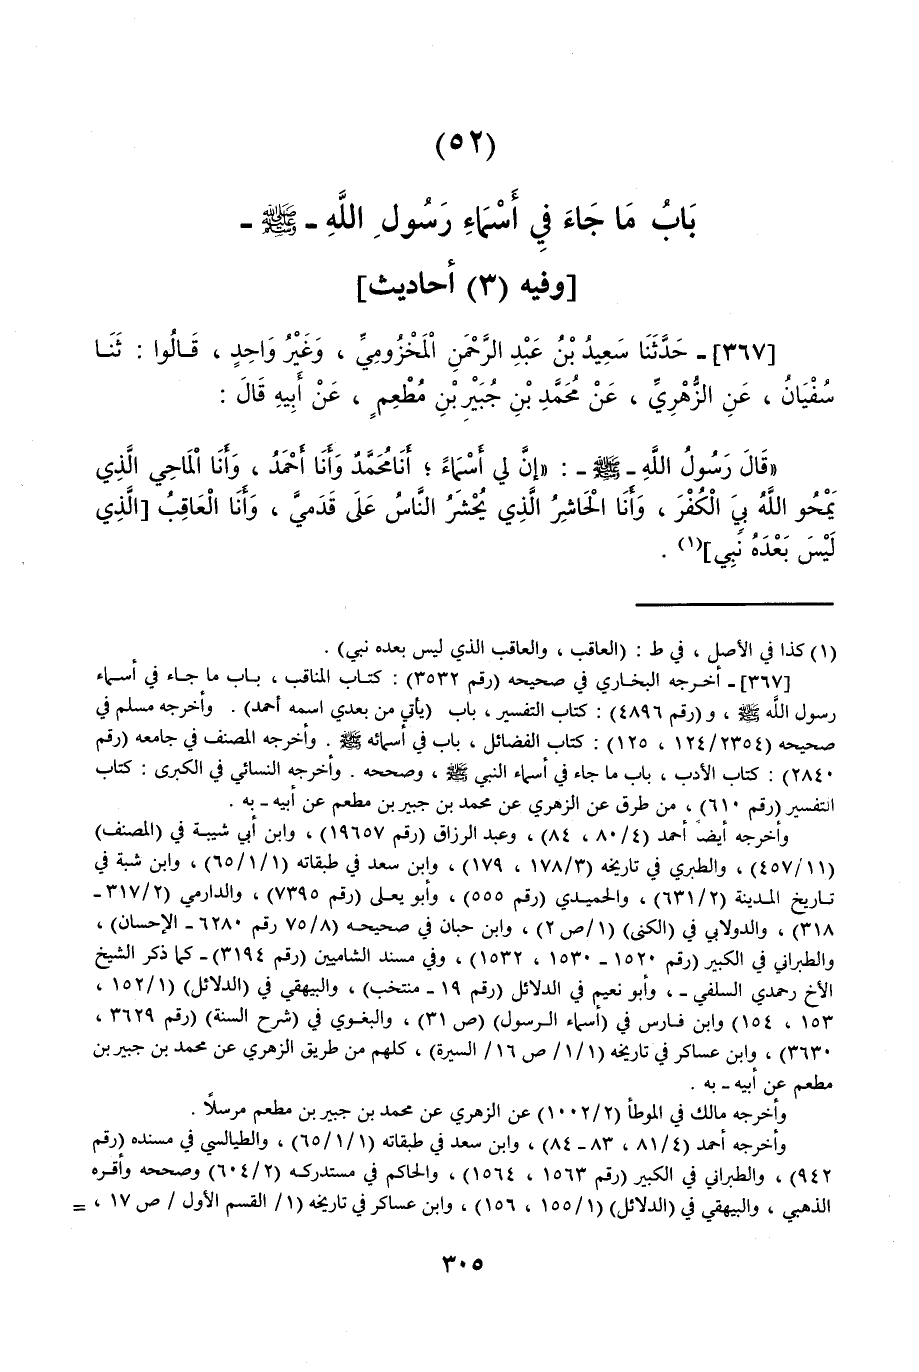 (٥٢)
بَابُ مَا جَاءَ فِي أَسْمَاءِ رَسُولِ اللَّهِ - ﷺ -
[وفيه (٣) أحاديث]
[٣٦٧] - حَدَّثَنَا سَعِيدُ بْنُ عَبْدِ الرَّحْمَنِ الْمَخْزُومِيِّ ، وَغَيْرُ وَاحِدٍ ، قَالُوا : ثَنَا
سُفْيَانُ ، عَنِ الزُّهْرِيِّ ، عَنْ مُحَمَّدِ بْنِ جُبَيْرِ بْنِ مُطْعِمٍ ، عَنْ أَبِيهِ قَالَ :
«قَالَ رَسُولُ اللَّهِ - ﷺ - : «إِنَّ لِي أَسْمَاءً ؛ أَنَا مُحَمَّدٌ وَأَنَا أَحْمَدُ ، وَأَنَا الْمَاحِي الَّذِي
يَمْحُو اللَّهُ بِيَ الْكُفْرَ ، وَأَنَا الْحَاشِرُ الَّذِي يُحْشَرُ النَّاسُ عَلَى قَدَمِيَّ ، وَأَنَا الْعَاقِبُ [الَّذِي
لَيْسَ بَعْدَهُ نَبِي](١) .
(١) كذا في الأصل ، في ط : (العاقب ، والعاقب الذي ليس بعده نبي) .
[٣٦٧] - أخرجه البخاري في صحيحه (رقم ٣٥٣٢) : كتاب المناقب ، باب ما جاء في أسماء
رسول اللَّه ﷺ ، و (رقم ٤٨٩٦) : كتاب التفسير ، باب (يأتي من بعدي اسمه أحمد) . وأخرجه مسلم في
صحيحه (١٢٤/٢٣٥٤ ، ١٢٥) : كتاب الفضائل ، باب في أسمائه ﷺ . وأخرجه المصنف في جامعه (رقم
٢٨٤٠) : كتاب الأدب ، باب ما جاء في أسماء النبي ﷺ ، وصححه . وأخرجه النسائي في الكبرى : كتاب
التفسير (رقم ٦١٠) ، من طرق عن الزهري عن محمد بن جبير بن مطعم عن أبيه - به .
وأخرجه أيضاً أحمد (٨٠/٤ ، ٨٤) ، وعبد الرزاق (رقم ١٩٦٥٧) ، وابن أبي شيبة في (المصنف)
(٤٥٧/١١) ، والطبري في تاريخه (١٧٨/٣ ، ١٧٩) ، وابن سعد في طبقاته (٦٥/١/١) ، وابن شبة في
تاريخ المدينة (٦٣١/٢) ، والحميدي (رقم ٥٥٥) ، وأبو يعلى (رقم ٧٣٩٥) ، والدارمي (٣١٧/٢ -
٣١٨) ، والدولابي في (الكنى) (١/ص ٢) ، وابن حبان في صحيحه (٧٥/٨ رقم ٦٢٨٠ - الإحسان) ،
والطبراني في الكبير (رقم ١٥٢٠ - ١٥٣٠ ، ١٥٣٢) ، وفي مسند الشاميين (رقم ٣١٩٤) - كما ذكر الشيخ
الأخ رحمدي السلفي - ، وأبو نعيم في الدلائل (رقم ١٩ - منتخب) ، والبيهقي في (الدلائل) (١٥٢/١ ،
١٥٣ ، ١٥٤) وابن فارس في (أسماء الرسول) (ص ٣١) ، والبغوي في (شرح السنة) (رقم ٣٦٢٩ ،
٣٦٣٠) ، وابن عساكر في تاريخه (١/١/ ص ١٦/ السيرة) ، كلهم من طريق الزهري عن محمد بن جبير بن
مطعم عن أبيه - به .
وأخرجه مالك في الموطأ (١٠٠٢/٢) عن الزهري عن محمد بن جبير بن مطعم مرسلاً .
وأخرجه أحمد (٨١/٤ ، ٨٣ - ٨٤) ، وابن سعد في طبقاته (٦٥/١/١) ، والطيالسي في مسنده (رقم
٩٤٢) ، والطبراني في الكبير (رقم ١٥٦٣ ، ١٥٦٤) ، والحاكم في مستدركه (٦٠٤/٢) وصححه وأقره
الذهبي ، والبيهقي في (الدلائل) (١٥٥/١ ، ١٥٦) ، وابن عساكر في تاريخه (١/ القسم الأول / ص ١٧ ، =
٣٠٥